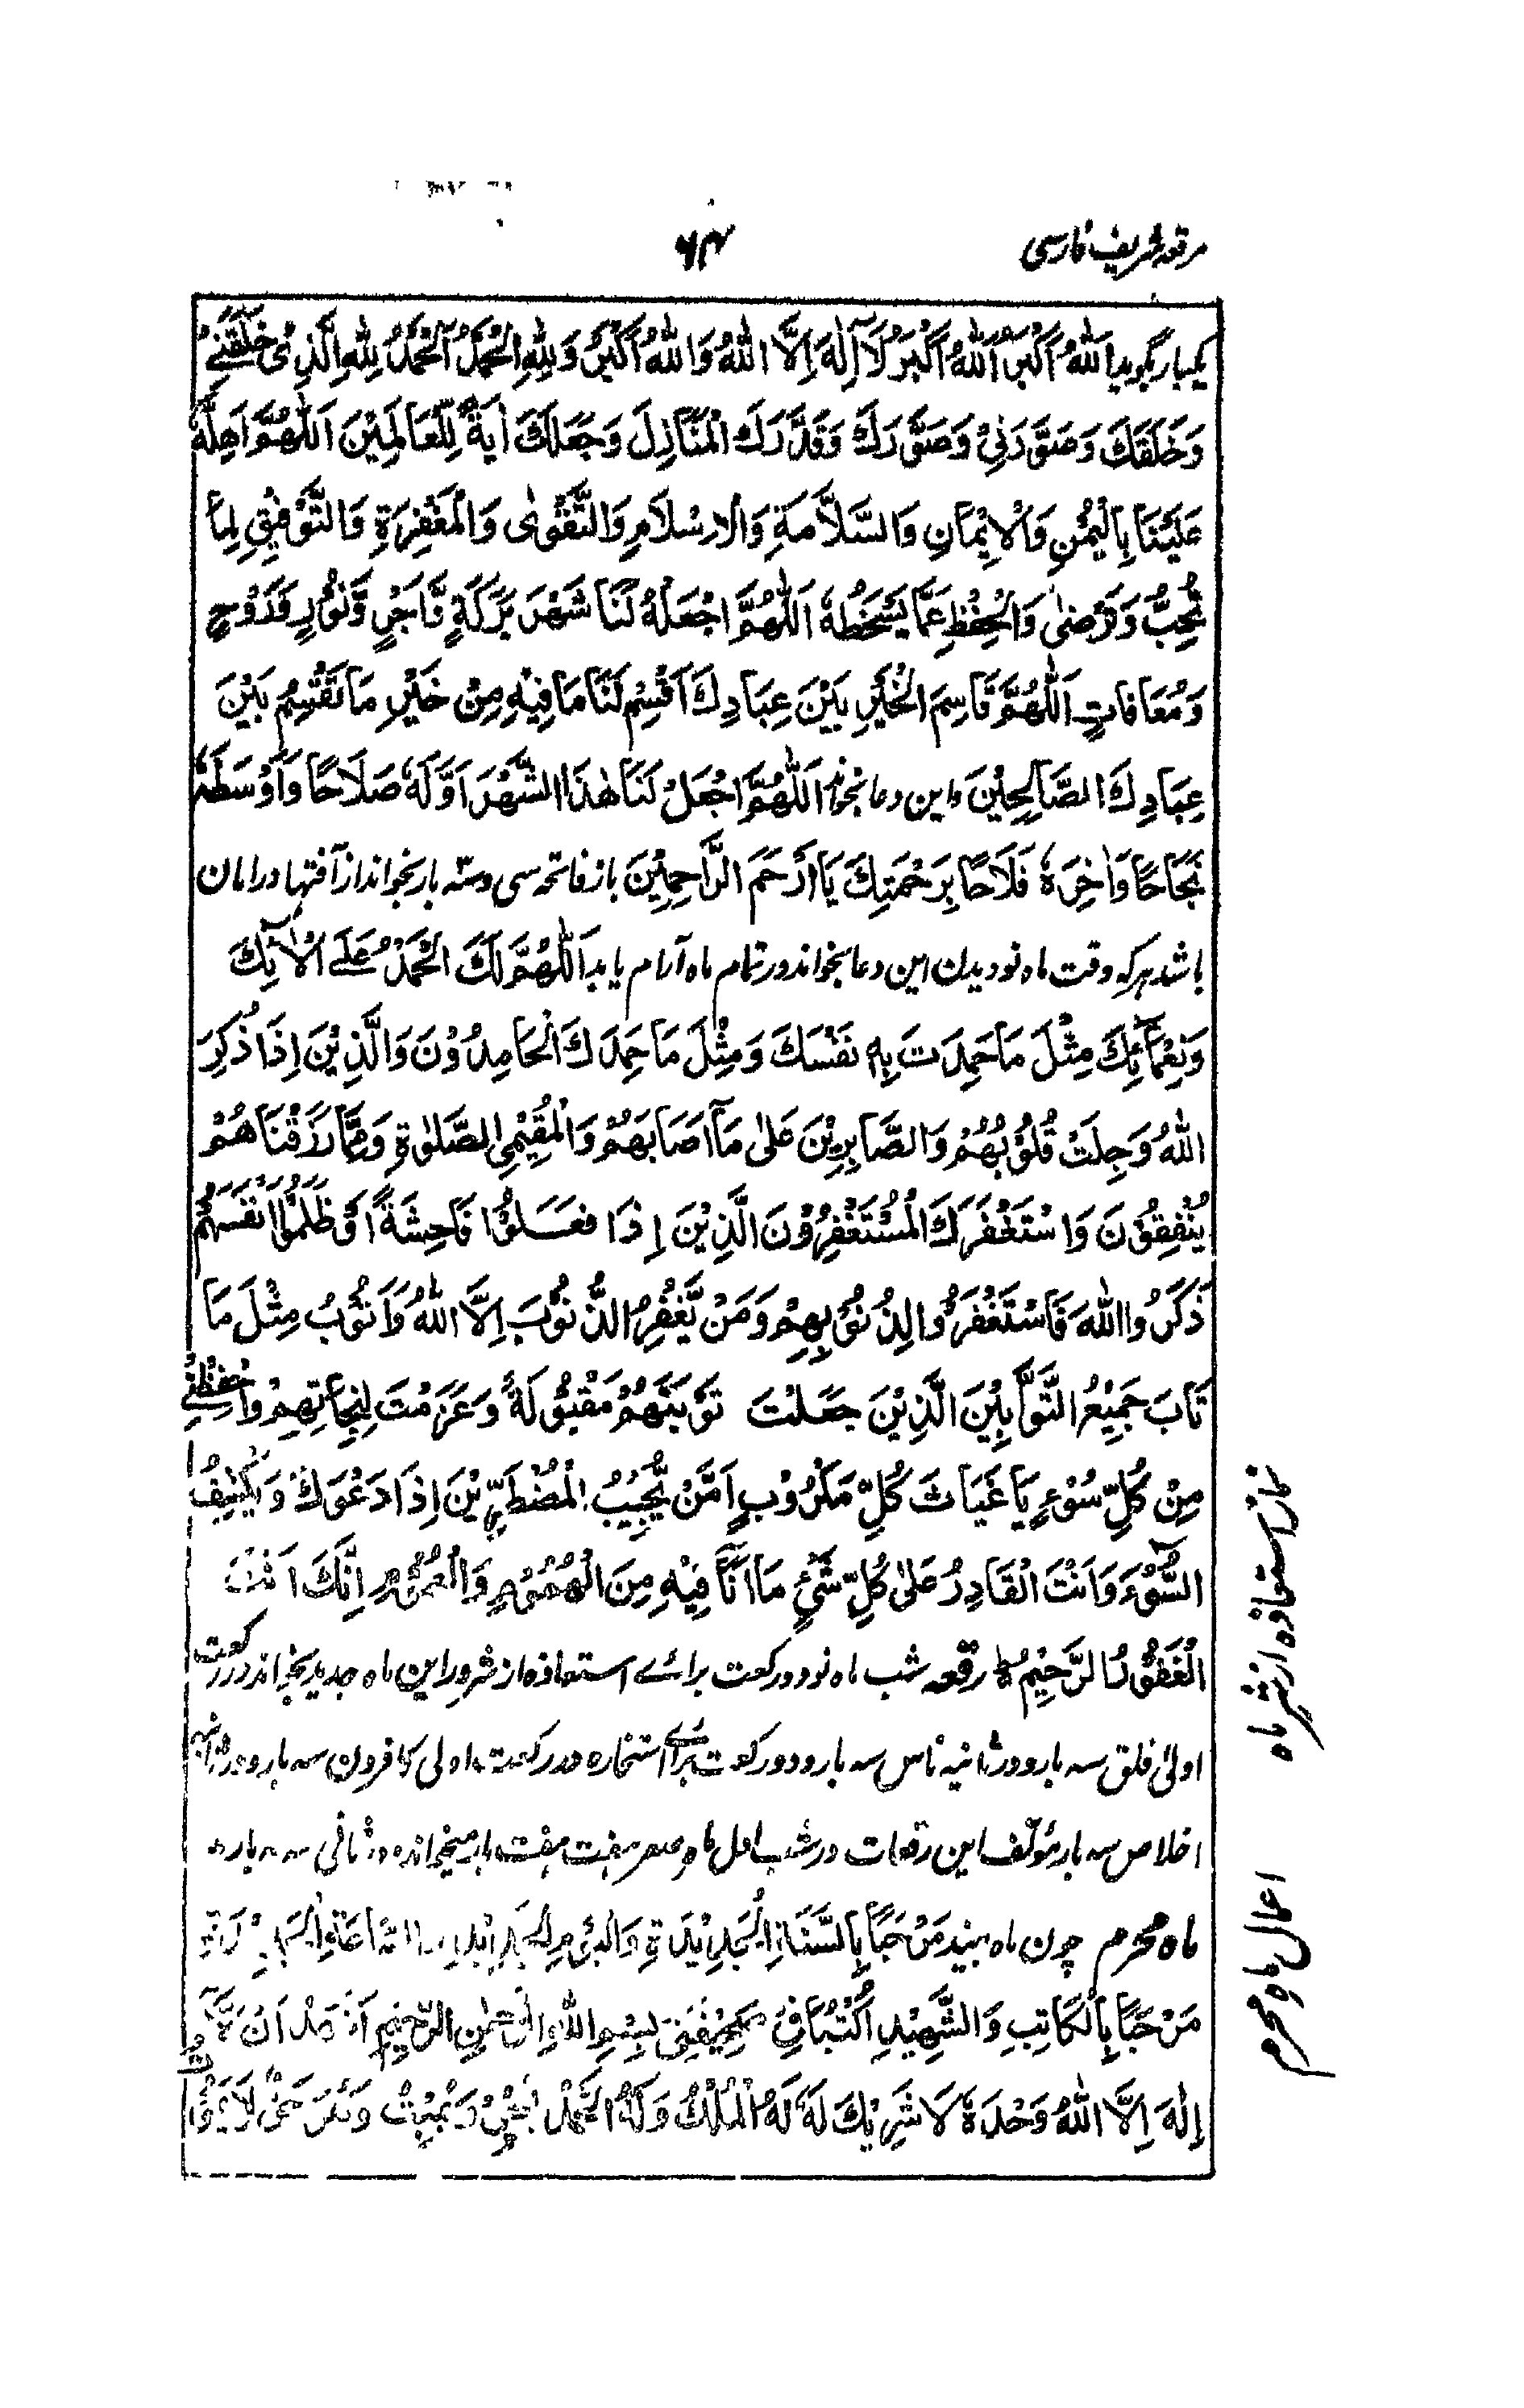 مرقعہ شریف فارسی
۶۴
یکبار بگوید اَللّٰهُ اَكْبَرُ اَللّٰهُ اَكْبَرُ لَآ اِلٰهَ اِلَّا اللّٰهُ وَاللّٰهُ اَكْبَرُ وَلِلّٰهِ الْحَمْدُ اَلْحَمْدُ لِلّٰهِ الَّذِیْ خَلَقَنِیْ
وَخَلَقَكَ وَصَوَّرَنِیْ وَصَوَّرَكَ وَقَدَّرَكَ الْمَنَازِلَ وَجَعَلَكَ اٰيَةً لِّلْعَالَمِيْنَ اَللّٰهُمَّ اَهِلَّهٗ
عَلَيْنَا بِالْيُمْنِ وَالْاِيْمَانِ وَالسَّلَامَةِ وَالْاِسْلَامِ وَالتَّقْوٰى وَالْمَغْفِرَةِ وَالتَّوْفِيْقِ لِمَا
تُحِبُّ وَتَرْضٰى وَالْحِفْظِ عَمَّا يَسْخَطُهٗ اَللّٰهُمَّ اجْعَلْهُ لَنَا شَهْرَ بَرَكَةٍ وَّاَجْرٍ وَّنُوْرٍ وَّرَوْحٍ
وَمُعَافَاتٍ اَللّٰهُمَّ قَاسِمَ الْخَيْرِ بَيْنَ عِبَادِكَ اَقْسِمْ لَنَا مَا فِيْهِ مِنْ خَيْرِ مَا تَقْسِمُ بَيْنَ
عِبَادِكَ الصَّالِحِيْنَ واین دعا بخواند اَللّٰهُمَّ اجْعَلْ لَنَا هٰذَا الشَّهْرَ اَوَّلَهٗ صَلَاحًا وَاَوْسَطَهٗ
نَجَاحًا وَاٰخِرَهٗ فَلَاحًا بِرَحْمَتِكَ يَا اَرْحَمَ الرَّاحِمِيْنَ باز فاتحه سی وسه بار بخواند از آفتها در امان
باشد ہرکہ وقت ماہ نو دیدن این دعا بخواند در تمام ماہ آرام یابد اَللّٰهُمَّ لَكَ الْحَمْدُ عَلٰى اٰلَآئِكَ
وَنِعْمَآئِكَ مِثْلَ مَا حَمِدَتَ بِهٖ نَفْسَكَ وَمِثْلَ مَا حَمِدَكَ الْحَامِدُوْنَ وَالَّذِيْنَ اِذَا ذُكِرَ
اللّٰهُ وَجِلَتْ قُلُوْبُهُمْ وَالصَّابِرِيْنَ عَلٰى مَآ اَصَابَهُمْ وَالْمُقِيْمِى الصَّلٰوةِ وَمِمَّا رَزَقْنَاهُمْ
يُنْفِقُوْنَ وَاسْتَغْفَرَكَ الْمُسْتَغْفِرُوْنَ الَّذِيْنَ اِذَا فَعَلُوْا فَاحِشَةً اَوْ ظَلَمُوْا اَنْفُسَهُمْ
ذَكَرُوا اللّٰهَ فَاسْتَغْفَرُوْا لِذُنُوْبِهِمْ وَمَنْ يَّغْفِرُ الذُّنُوْبَ اِلَّا اللّٰهُ وَاَتُوْبُ مِثْلَ مَا
تَابَ جَمِيْعُ التَّوَّابِيْنَ الَّذِيْنَ جَعَلْتَ تَوْبَتَهُمْ مَقْبُوْلَةً وَعَزَمْتَ لِنِجَاتِهِمْ وَاحْفِظْنِیْ
مِنْ كُلِّ سُوْءٍ يَا غَيَاثَ كُلِّ مَكْرُوْبٍ اَمَّنْ يُّجِيْبُ الْمُضْطَرِّيْنَ اِذَا دَعَوْكَ وَيَكْشِفُ
السُّوْٓءَ وَاَنْتَ الْقَادِرُ عَلٰى كُلِّ شَیْءٍ مَا اَنَا فِيْهِ مِنَ الْهُمُوْمِ وَالْغُمُوْمِ اِنَّكَ اَنْتَ
الْغَفُوْرُ الرَّحِيْمُ رقعہ شب ماہ نو دو رکعت برائے استعاذہ از شرور این ماہ جدید بخواند در رکعت
اولیٰ فلق سہ بار و در ثانیہ ناس سہ بار و دو رکعت برائے استخارہ در رکعت اولی کافرون سہ بار و در ثانیہ
اخلاص سہ بار مؤلف این رقعات در شب اول ماہ صفر ہفت ہفت بار میخواندہ و ثانی سہ سہ بار
ماہ محرم چون ماہ بیند مَرْحَبًا بِالسَّنَةِ الْجَدِيْدَةِ وَالْيَوْمِ الْجَدِيْدِ
مَرْحَبًا بِالْكَاتِبِ وَالشَّهِيْدِ اُكْتُبَا فِیْ صَحِيْفَتِیْ بِسْمِ اللّٰهِ الرَّحْمٰنِ الرَّحِيْمِ اَشْهَدُ اَنْ لَّآ
اِلٰهَ اِلَّا اللّٰهُ وَحْدَهٗ لَا شَرِيْكَ لَهٗ لَهُ الْمُلْكُ وَلَهُ الْحَمْدُ يُحْيِیْ وَيُمِيْتُ وَهُوَ حَیٌّ لَا يَمُوْتُ
نماز استعاذہ از شر ماہ
اعمال ماہ محرم